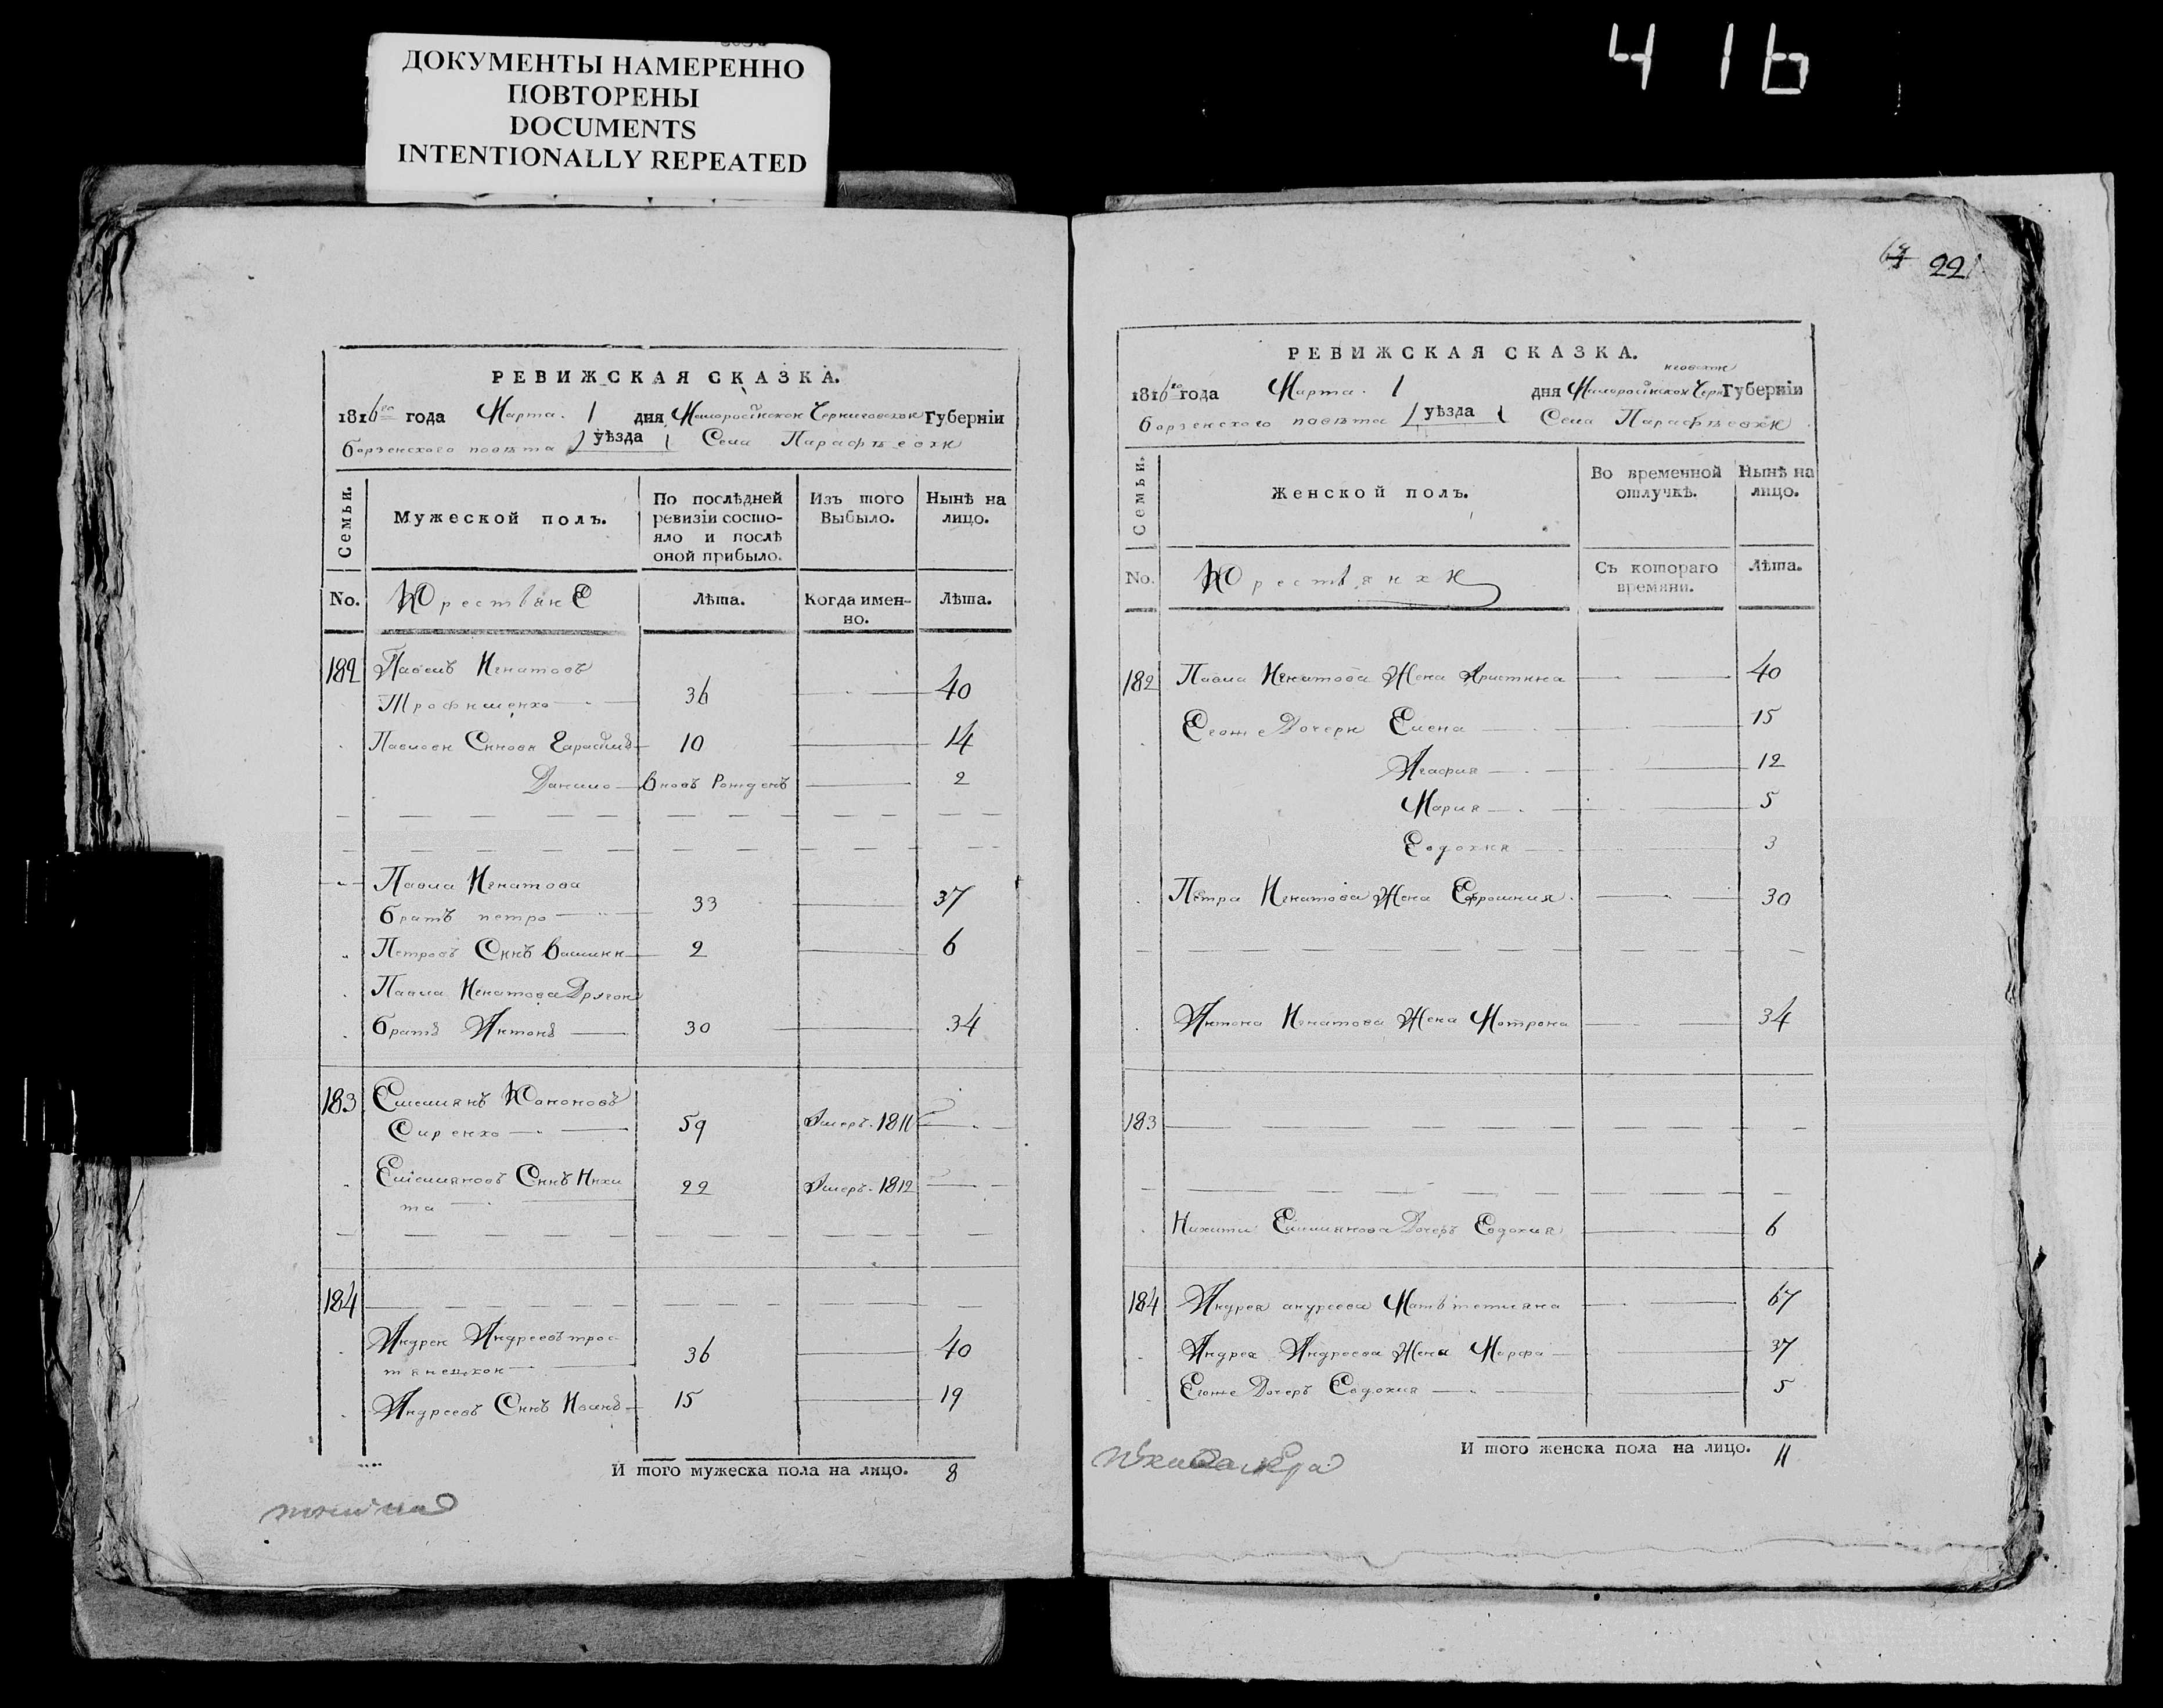 416
ДОКУМЕНТЫ НАМЕРЕННО
ПОВТОРЕНЫ
DOCUMENTS
INTENTIONALLY REPEATED
РЕВИЖСКАЯ СКАЗКА.
1816го года Марта 1 дня Малоросійской Черниговской Губерніи
борзенского повѣта уѣзда Села Парафѣевки
Семьи.
Мужеской полъ.
По послѣдней
ревизіи состо-
яло и послѣ
оной прибыло.
Изъ того
Выбыло.
Нынѣ на
лицо.
No.
Крестьяне
Лѣта.
Когда имен-
но.
Лѣта.
182 Павелъ Игнатовъ
Трофименко 36 40
Павловы Сыновя Гарасимъ 10 14
Данило вновь Рожденъ 2
Павла Игнатова
братъ петро 33 37
Петровъ Сынъ василий 2 6
Павла Игнатова Другой
братъ Антонъ 30 34
183 Емелиянъ Кононовъ
Сиренко 59 Умеръ. 1811
Емелияновъ Сынъ Ники
та 22 Умеръ. 1812
184
Андрей Андреевъ трос
тянецкой 36 40
Андреевъ Сынъ Иванъ 15 19
И того мужеска пола на лицо. 8
22
РЕВИЖСКАЯ СКАЗКА.
ниговской
1816го года Марта 1 дня Малоросійской Чер Губерніи
борзенского повѣта уѣзда Села Парафѣевки
Семьи.
Женской полъ.
Во временной
отлучкѣ.
Нынѣ на
лицо.
No.
Крестянки
Съ котораго
времяни.
Лѣта.
182 Павла Игнатова Жена Христина 40
Егоже Дочери Елена 15
Агафия 12
Мария 5
Евдокия 3
Петра Игнатова Жена Ефросиния 30
Антона Игнатова Жена Мотрона 34
183
Никити Емелиянова Дочерь Евдокия 6
184 Андрея андреева Мать тетияна 67
Андрея Андреева Жена Марфа 37
Егоже Дочерь Евдокия 5
И того женска пола на лицо. 11